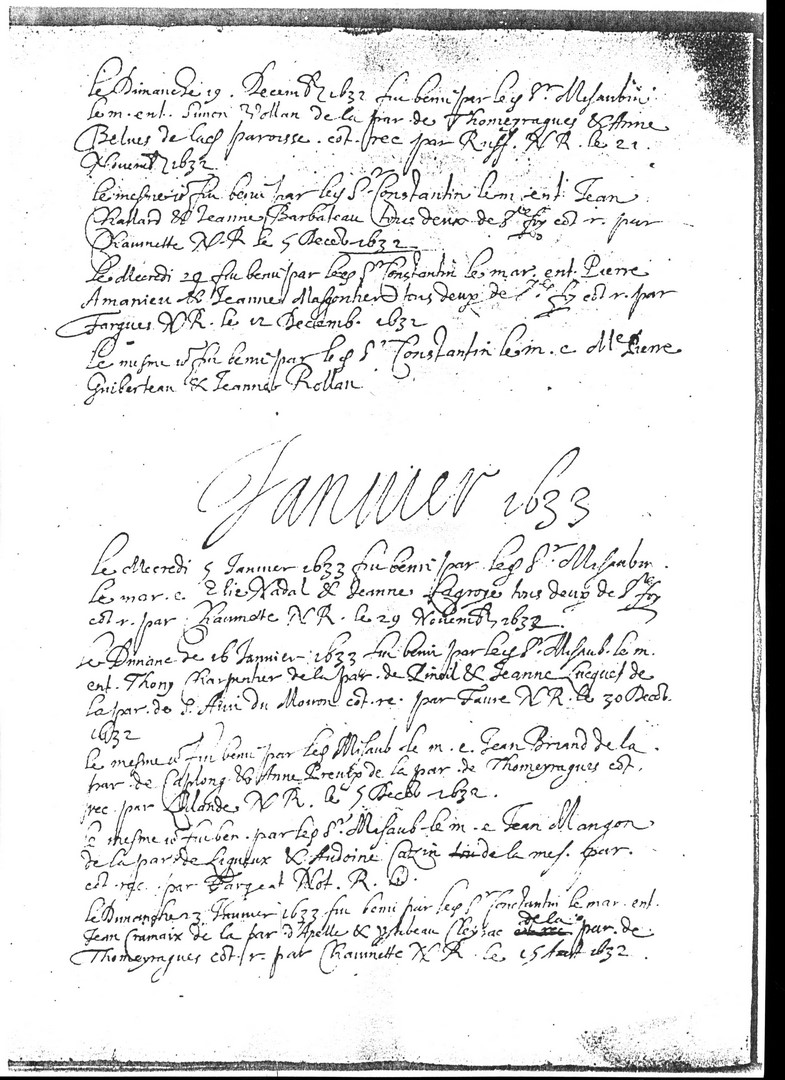 Le Dimanche 19. Decemb. 1632 fu beni par led. Sr. Misaubin
le m. ent. Simon Vollan de la par. de Thomeyragues & Anne
Belues de lad. paroisse. cot. rec. par Ruff. N.R. le 21.
Novemb. 1632
le mesme jo. fu beni par led. Sr. Constantin le m. ent. Jean
Challard & Jeanne Barbateau tous deux de Ste. foy cot. r. par
Chaumette N.R. le 5 Decēb 1632
Le Mecredi 29 fu beni par led. Sr. Constantin le mar. ent. Pierre
Amanieu & Jeanne tous deux de Ste. foy cot. r. par
Fargues N.R. le 12 Decemb. 1632
Le mesme jo. fu beni par led. Sr. Constantin le m. e. Me. Pierre
Guiberteau & Jeanne Rollan
Januier 1633
Le Mecredi 5 Januier 1633 fu beni par led. Sr. Misaubin.
le mar. e. Elie Nadal & Jeanne Lagroye tous deux de Ste. foy
cot. r. par Chaumete N.R. le 29 Novemb. 1632.
Le Dimāc de 16 Januier 1633 fu beni par led. Sr. Misaub. le m.
ent. Thony Charpentier de la par. de & Jeanne de
la par. de S. Auit du Moiron cot. re. par Faure N.R. le 30 Decēb.
1632
le mesme jo. fu beni par led. Misaub. le m. e. Jean Briand de la
par. de Caplong & Anne de la par. de Thomeyragues cot.
rec. par Lalande N.R. le 5 Decēb 1632.
le mesme jo. fu ben. par led. Sr. Misaub. le m. e. Jean Mangon
de la par. de Ligueux & Andoine de la mes. par.
cot. rec. par Not. R.
le Dimanche 23 Januier 1633 fu beni par led. Sr. Constantin le mar. ent.
Jean Cramaix de la par. d'Apelle & Ysabeau Cleyrac de la par. de
Thomeyragues cot. r. par Chaumette N.R. le 15 1632.